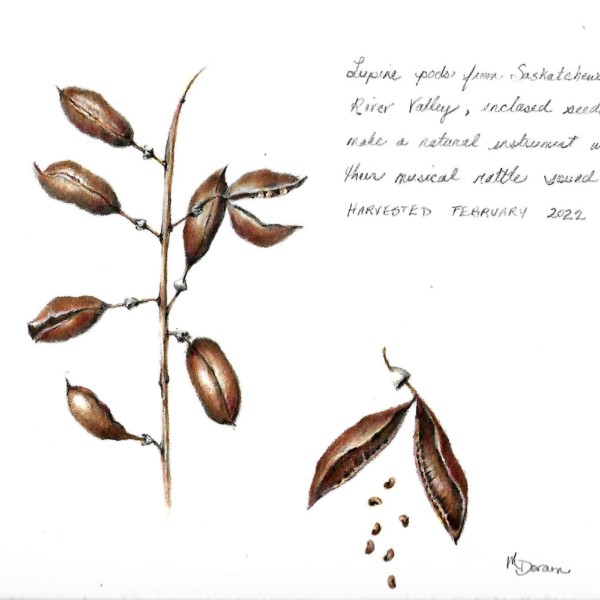 Lupine pods from Saskatchew
River Valley, inclosed seed
make a natural instrument w
thus musical rattle sound
HARVESTED FEBRUARY 2022
MDoram